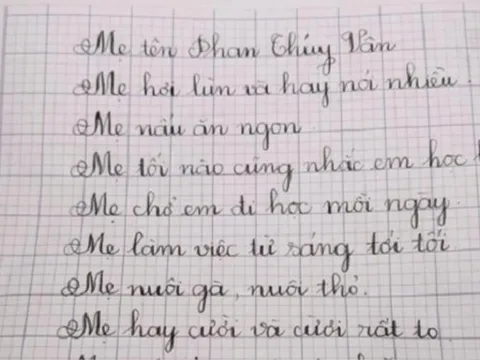 Mẹ tên Phan Thúy Vân
Mẹ hơi lùn và hay nói nhiều.
Mẹ nấu ăn ngon
Mẹ tối nào cũng nhắc em học
Mẹ chở em đi học mỗi ngày.
Mẹ làm việc từ sáng tới tối
Mẹ nuôi gà, nuôi thỏ.
Mẹ hay cười và cười rất to